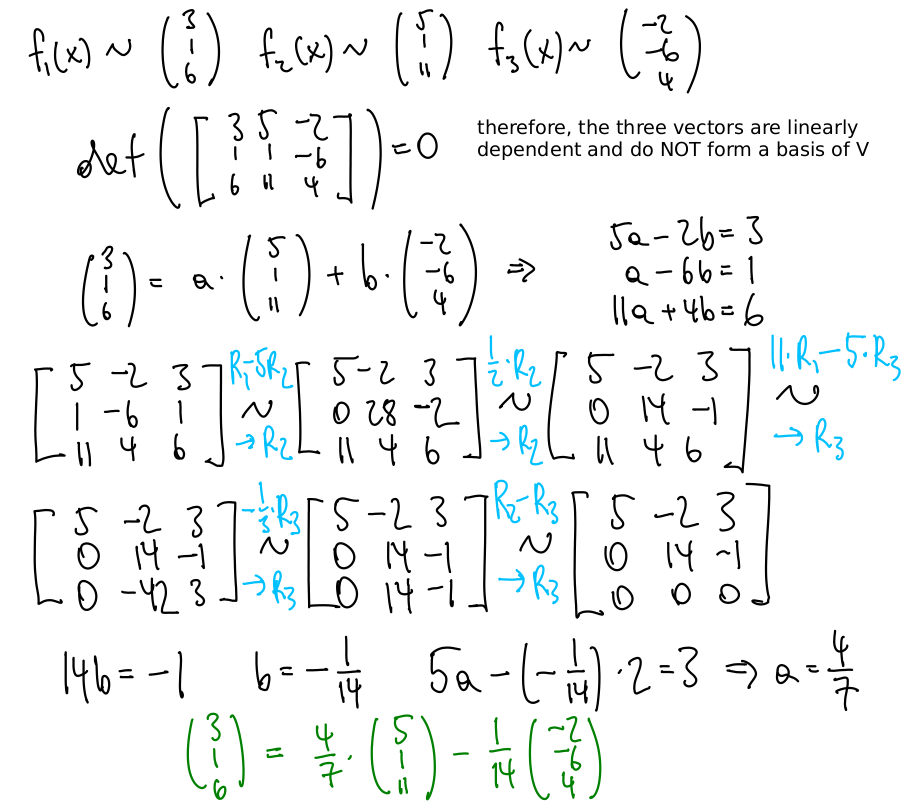 f₁(x) ~ (3 1 6) f₂(x) ~ (5 1 11) f₃(x) ~ (-2 -6 4)
det([3 5 -2; 1 1 -6; 6 11 4]) = 0 therefore, the three vectors are linearly
dependent and do NOT form a basis of V
(3 1 6) = a · (5 1 11) + b · (-2 -6 4) ⇒
5a - 2b = 3
a - 6b = 1
11a + 4b = 6
[5 -2 3; 1 -6 1; 11 4 6] R₁-5R₂ ~ → R₂ [5 -2 3; 0 28 -2; 11 4 6] 1/2 · R₂ ~ → R₂ [5 -2 3; 0 14 -1; 11 4 6] 11·R₁ - 5·R₃ ~ → R₃
[5 -2 3; 0 14 -1; 0 -42 3] -1/3 · R₃ ~ → R₃ [5 -2 3; 0 14 -1; 0 14 -1] R₂-R₃ ~ → R₃ [5 -2 3; 0 14 -1; 0 0 0]
14b = -1 b = -1/14 5a - (-1/14) · 2 = 3 ⇒ a = 4/7
(3 1 6) = 4/7 · (5 1 11) - 1/14 (-2 -6 4)